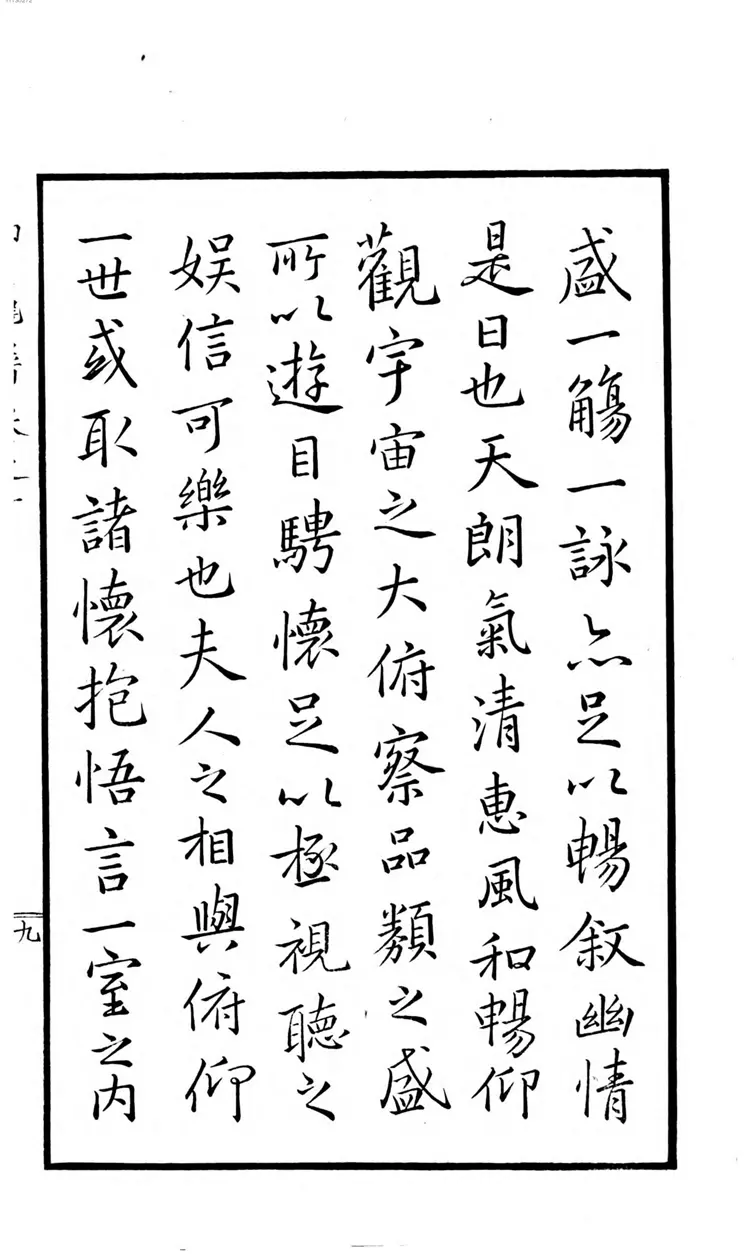 盛一觴一詠亦足以暢叙幽情
是日也天朗氣清惠風和暢仰
觀宇宙之大俯察品類之盛
所以遊目騁懷足以極視聽之
娛信可樂也夫人之相與俯仰
一世或取諸懷抱悟言一室之内
九